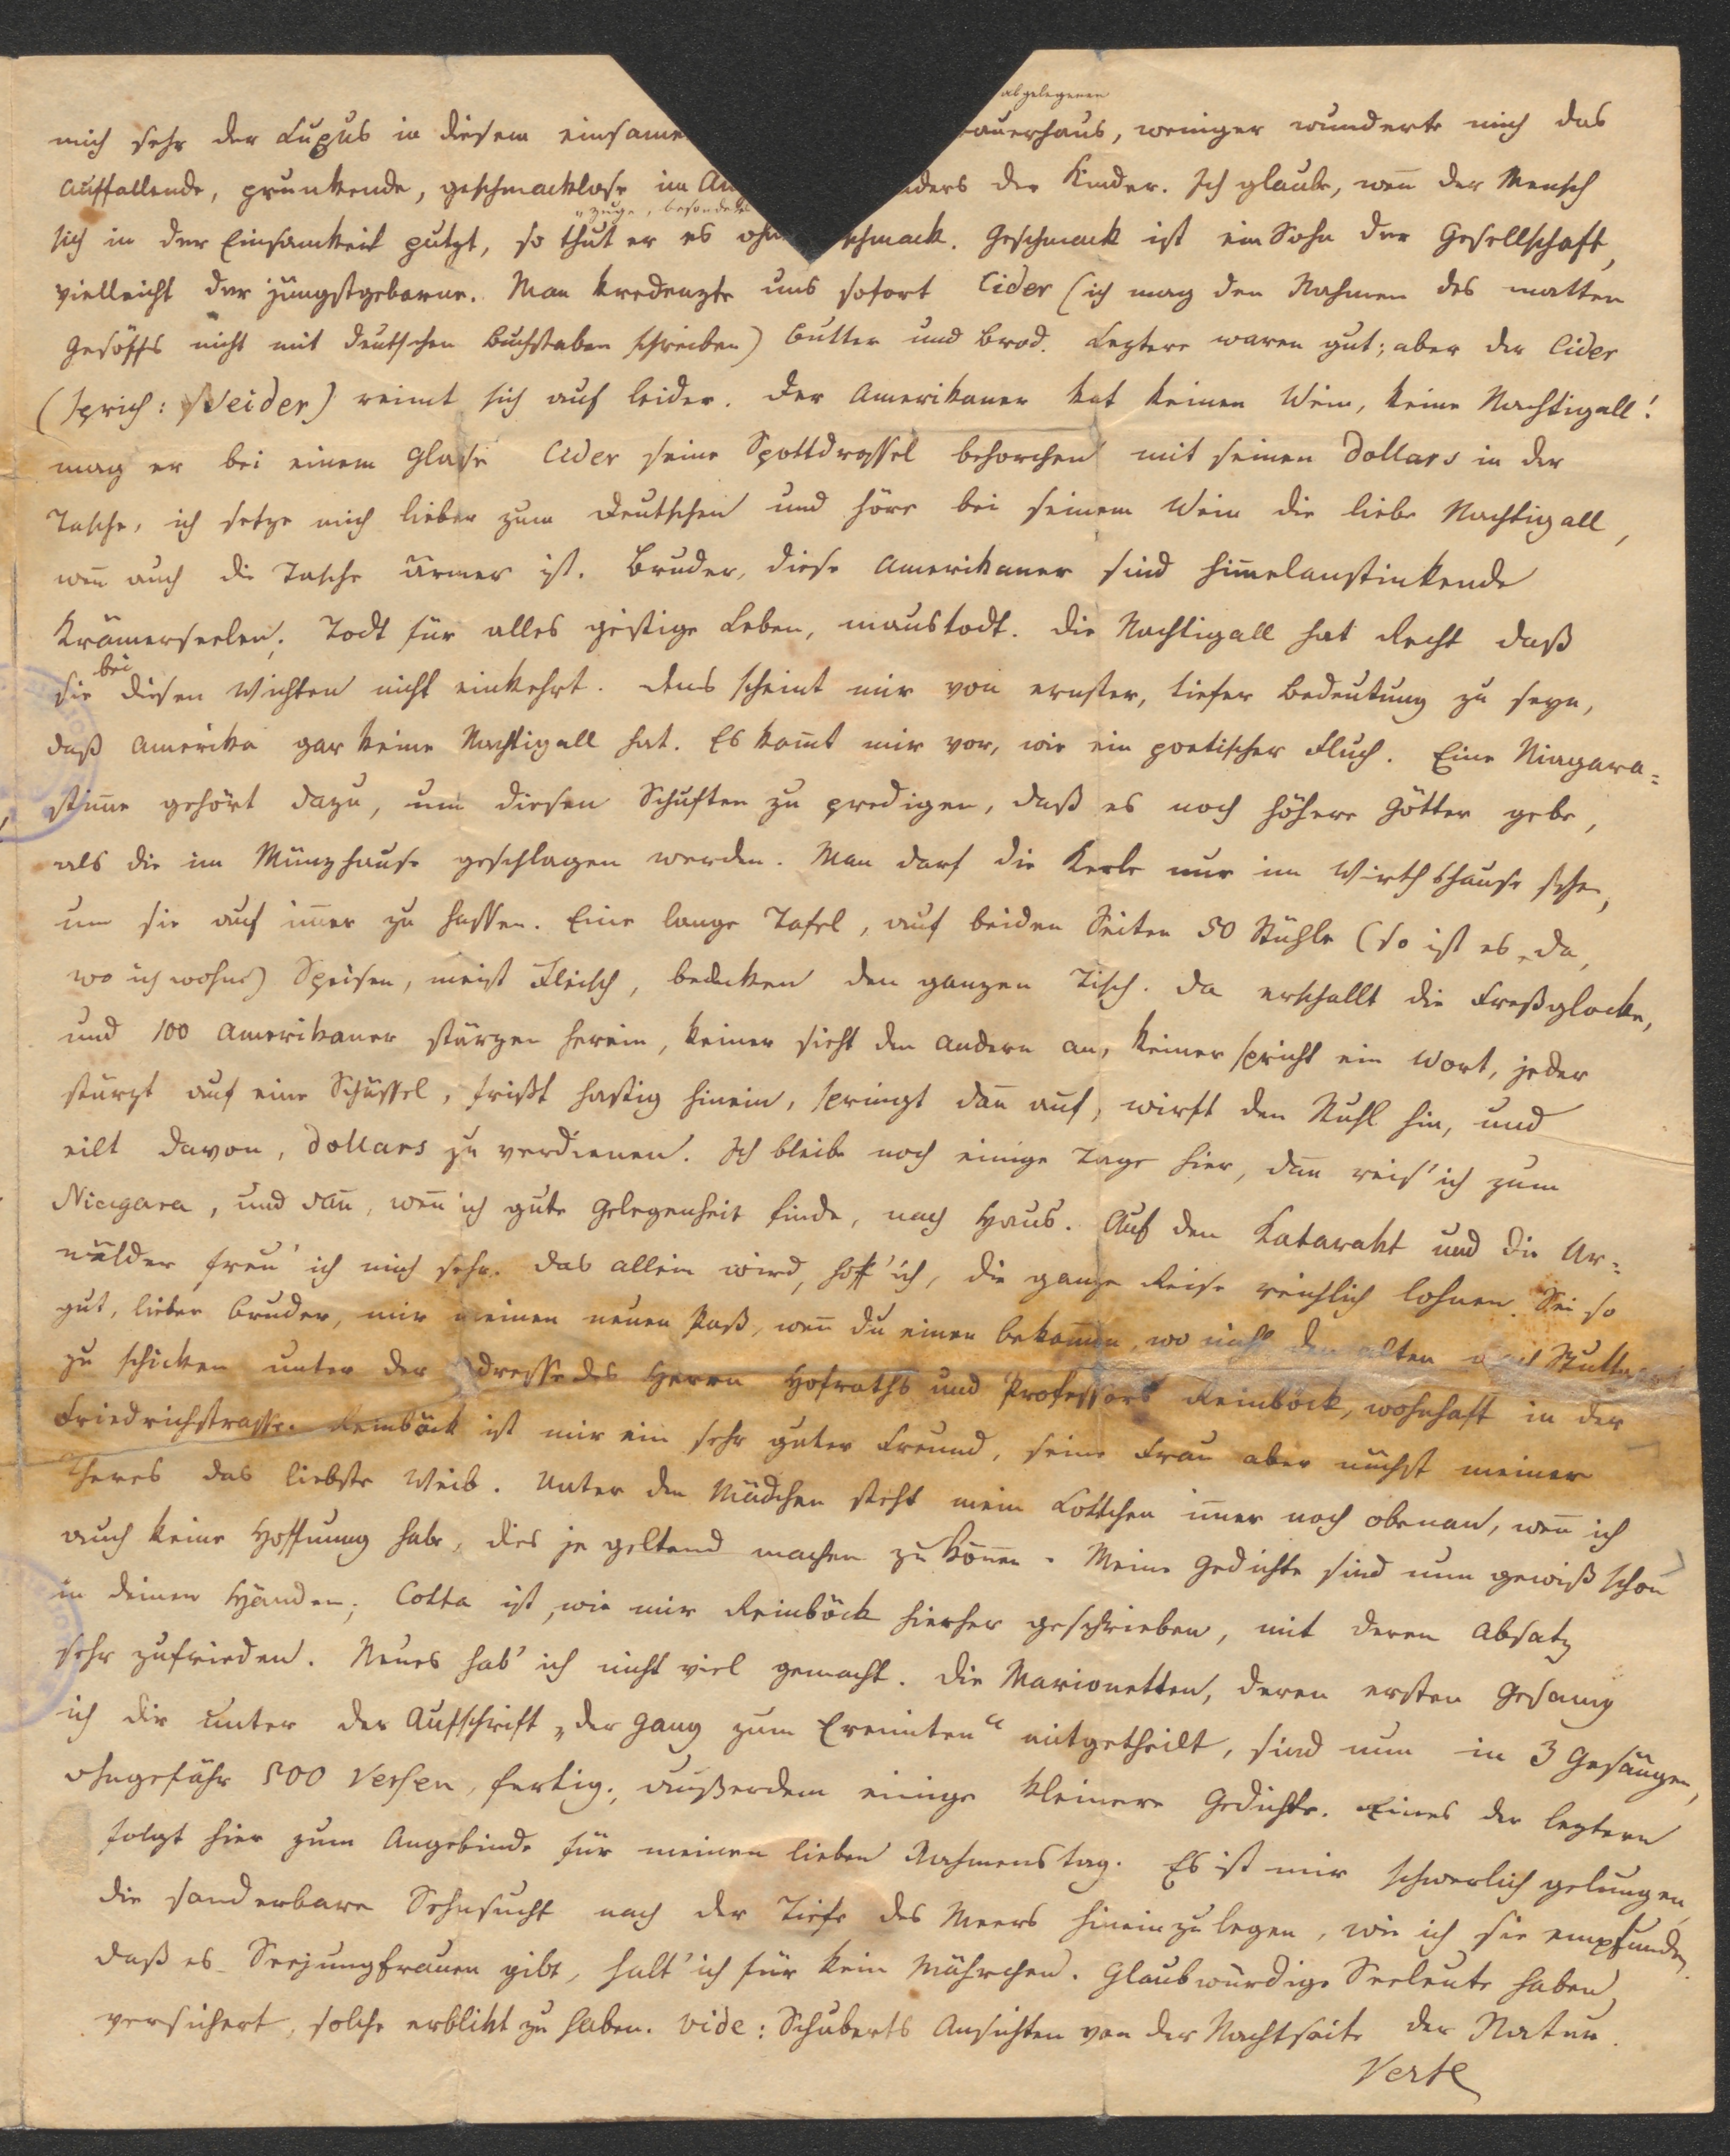 abgelegenen
mich sehr der Luxus in diesem einsame auerhaus, weniger wunderte mich das
Auffallende, prunkende, geschmacklose im An nders der Kinder. Ich glaube, wen̅ der Mensch
zuge, besonders
sich in der Einsamkeit putzt, so thut er es ohn schmack. Geschmack ist ein Sohn der Gesellschaft,
vielleicht der jüngstgeborne. Man kredenzte uns sofort Cider (ich mag den Nahmen des matten
Gesöffs nicht mit deutschen Buchstaben schreiben) Butter und Brod. Leztere waren gut; aber der Cider
(sprich: Seider) reimt sich auf leider. Der Amerikaner hat keinen Wein, keine Nachtigall!
mag er bei einem Glase Cider seine Spottdrossel behorchen mit seinen Dollars in der
Tasche, ich setze mich lieber zum Deutschen und höre bei seinem Wein die liebe Nachtigall,
wen̅ auch die Tasche ärmer ist. Bruder, diese Amerikaner sind him̅elanstinkende
Krämerseelen. Todt für alles geistige Leben, maustodt. Die Nachtigall hat Recht daß
bei
sie diesen Wichten nicht einkehrt. Das scheint mir von ernster, tiefer Bedeutung zu seyn,
daß Amerika gar keine Nachtigall hat. Es kom̅t mir vor, wie ein poetischer Fluch. Eine Niagara=
stim̅e gehört dazu, um diesen Schuften zu predigen, daß es noch höhere Götter gebe,
als die im Münzhause geschlagen werden. Man darf die Kerle nur im Wirthshause sehen,
um sie auf im̅er zu hassen. Eine lange Tafel, auf beiden Seiten 50 Stühle (so ist es, da,
wo ich wohne) Speisen, meist Fleisch, bedecken den ganzen Tisch. Da erschallt die Freßglocke,
und 100 Amerikaner stürzen herein, keiner sieht den andern an, keiner spricht ein Wort, jeder
stürzt auf eine Schüssel, frißt hastig hinein, springt dan̅ auf, wirft den Stuhl hin, und
eilt davon, Dollars zu verdienen. Ich bleibe noch einige Tage hier, dan̅ reis' ich zum
Niagara, und dan̅, wen̅ ich gute Gelegenheit finde, nach Haus. Auf den Katarakt und die Ur=
wälder freu' ich mich sehr. Das allein wird, hoff' ich, die ganze Reise reichlich lohnen. Sei so
gut, lieber Bruder, mir meinen neuen Paß, wen̅ du einen bekom̅en, wo nicht den alten nach Stuttgart
zu schicken unter der Adresse des Herrn Hofraths und Professors Reinböck, wohnhaft in der
Friedrichstrasse. Reinböck ist mir ein sehr guter Freund, seine Frau aber nächst meiner
Theres das liebste Weib. Unter den Mädchen steht mein Lottchen im̅er noch obenan, wen̅ ich
auch keine Hoffnung habe, dies je geltend machen zu kön̅en. Meine Gedichte sind nun gewiß schon
in deinen Händen; Cotta ist, wie mir Reinböck hierher geschrieben, mit deren Absatz
sehr zufrieden. Neues hab' ich nicht viel gemacht. Die Marionetten, deren ersten Gesang
ich dir unter der Aufschrift „der Gang zum Eremiten“ mitgetheilt, sind nun in 3 Gesängen,
ohngefähr 500 Versen, fertig; außerdem einige kleinere Gedichte. Eines der leztern
folgt hier zum Angebinde für meinen lieben Nahmenstag. Es ist mir schwerlich gelungen,
die sonderbare Sehnsucht nach der Tiefe des Meers hineinzulegen, wie ich sie empfunden.
daß es Seejungfrauen gibt, halt' ich für kein Mährchen. Glaubwürdige Seeleute haben
versichert, solche erblikt zu haben. vide: Schuberts Ansichten von der Nachtseite der Natur.
Verte